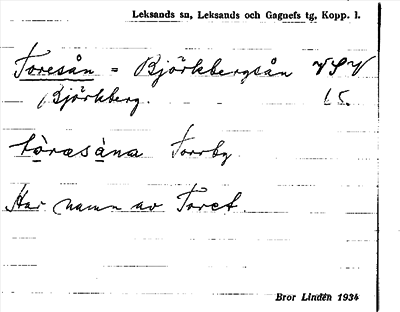 Leksands sn, Leksands och Gagnefs tg, Kopp. l.
Foresån = Björkbergsån VSV
Björkberg. l.5.
fò̀rasàna Forrby
Har namn av Foret
Bror Lindén 1934